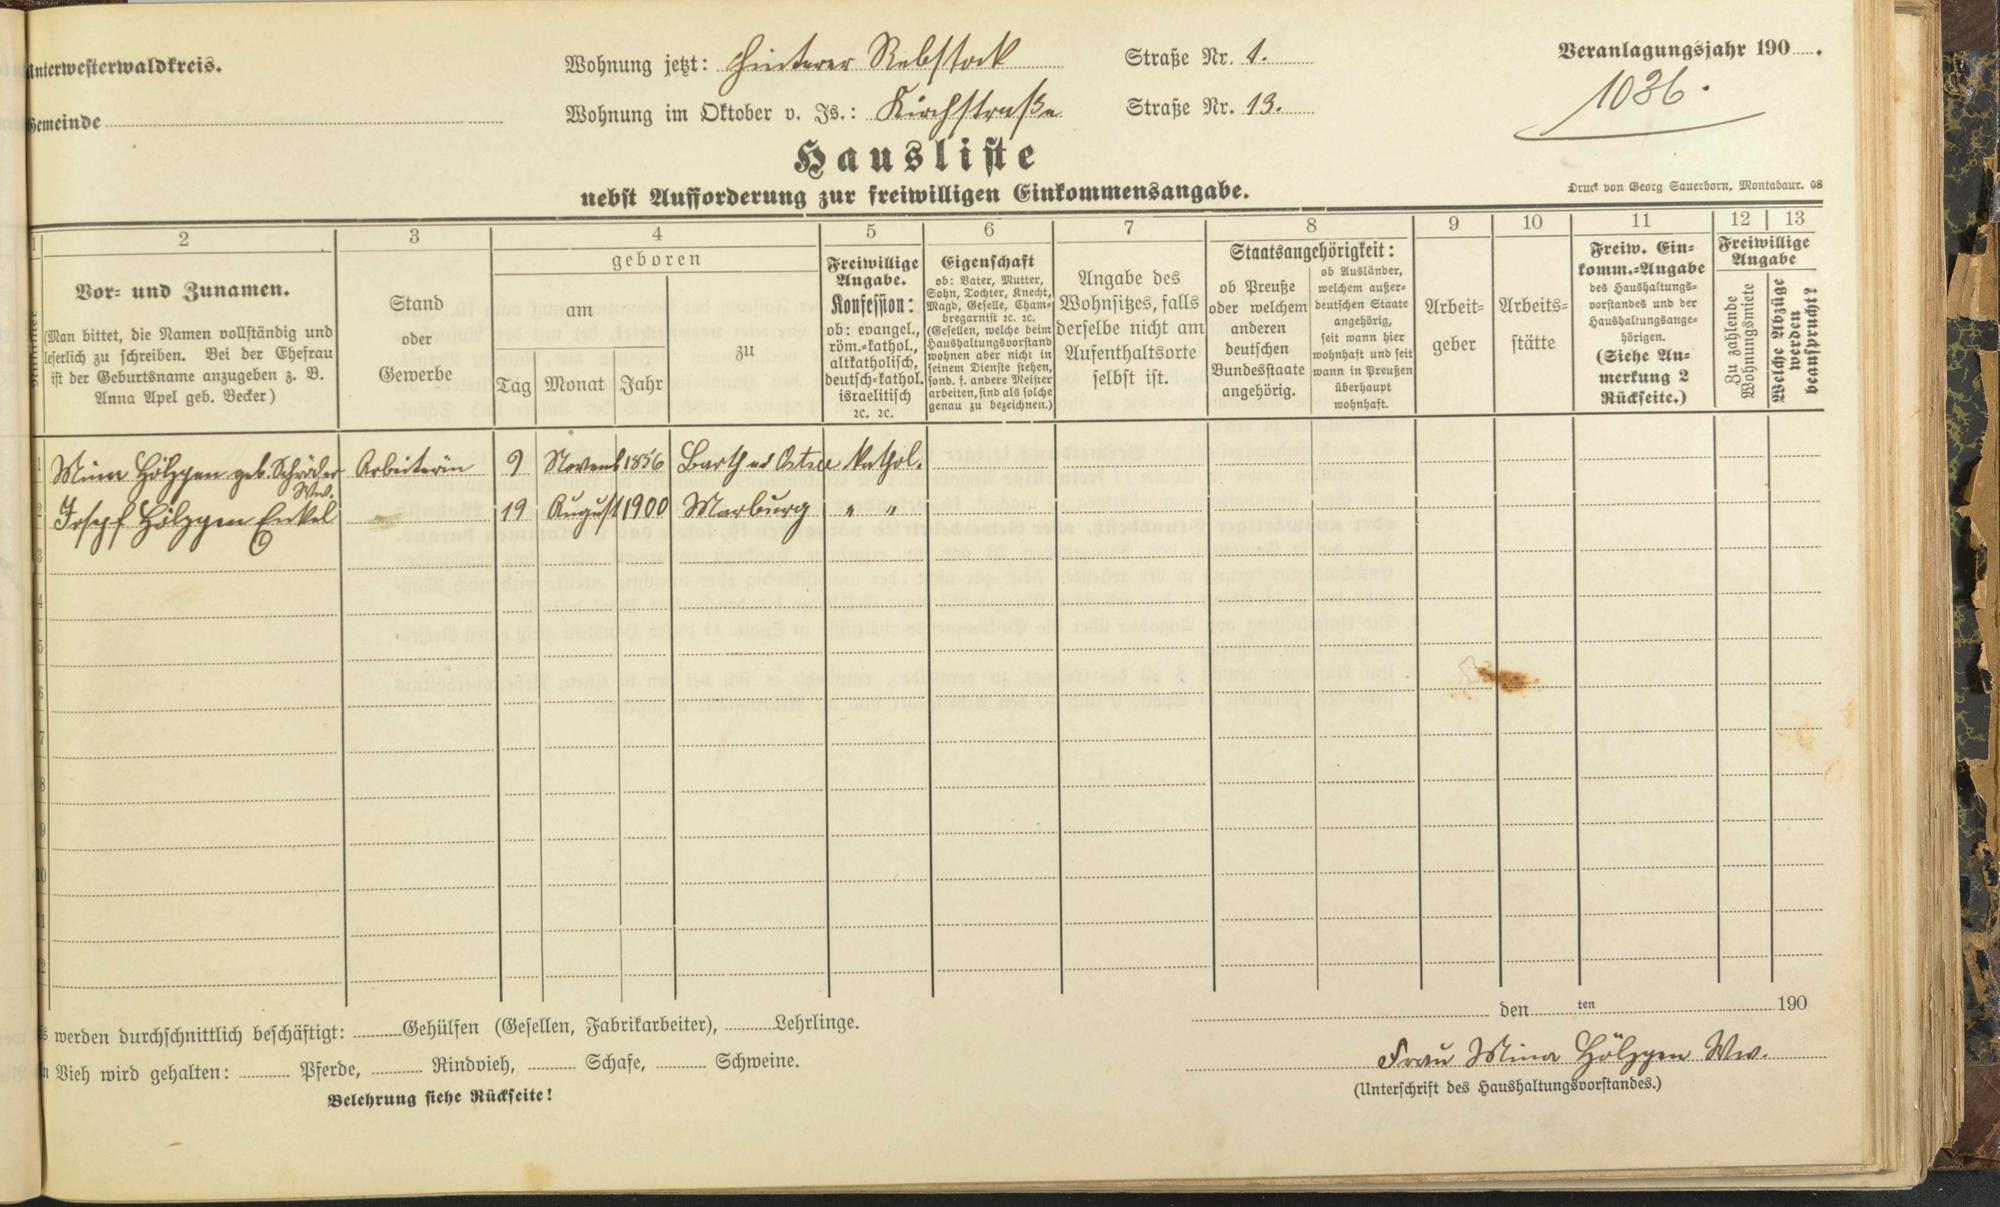 Unterwesterwaldkreis.
Wohnung jetzt: Hinterer Rebstock Straße Nr. 1.
Veranlagungsjahr 190 .
Gemeinde
Wohnung im Oktober v. Js.: Kirchstraße Straße Nr. 13.
1036.
Hausliste
nebst Aufforderung zur freiwilligen Einkommensangabe.
Druck von Georg Sauerborn, Montabaur. 08
1 2 3 4 5 6 7 8 9 10 11 12 13
Vor- und Zunamen.
(Man bittet, die Namen vollständig und
leserlich zu schreiben. Bei der Ehefrau
ist der Geburtsname anzugeben z. B.
Anna Apel geb. Becker)
Stand
oder
Gewerbe
geboren
am
Tag Monat Jahr
zu
Freiwillige
Angabe.
Konfession:
ob: evangel.,
röm.-kathol.,
altkatholisch,
deutsch-kathol.
israelitisch
ꝛc. ꝛc.
Eigenschaft
ob: Vater, Mutter,
Sohn, Tochter, Knecht,
Magd, Geselle, Cham-
bregarnist ꝛc. ꝛc.
(Gesellen, welche beim
Haushaltungsvorstand
wohnen aber nicht in
seinem Dienste stehen,
sond. f. andere Meister
arbeiten, sind als solche
genau zu bezeichnen.)
Angabe des
Wohnsitzes, falls
derselbe nicht am
Aufenthaltsorte
selbst ist.
Staatsangehörigkeit:
ob Preuße
oder welchem
anderen
deutschen
Bundesstaate
angehörig.
ob Ausländer,
welchem außer-
deutschen Staate
angehörig,
seit wann hier
wohnhaft und seit
wann in Preußen
überhaupt
wohnhaft.
Arbeit-
geber
Arbeits-
stätte
Freiw. Ein-
komm.-Angabe
des Haushaltungs-
vorstandes und der
Haushaltungsange-
hörigen.
(Siehe An-
merkung 2
Rückseite.)
Freiwillige
Angabe
Zu zahlende
Wohnungsmiete
Welche Abzüge
werden
beansprucht?
1 Mina Hölzgen geb. Schröder Arbeiterin 9 Novemb 1856 Barth ad Ostsee kathol.
Ww.
2 Josepf Hölzgen Enkel 19 August 1900 Marburg " "
3
4
5
6
7
8
9
10
11
12
werden durchschnittlich beschäftigt: Gehülfen (Gesellen, Fabrikarbeiter), Lehrlinge.
den ten 190
Vieh wird gehalten: Pferde, Rindvieh, Schafe, Schweine.
Frau Mina Hölzgen Ww.
(Unterschrift des Haushaltungsvorstandes.)
Belehrung siehe Rückseite!